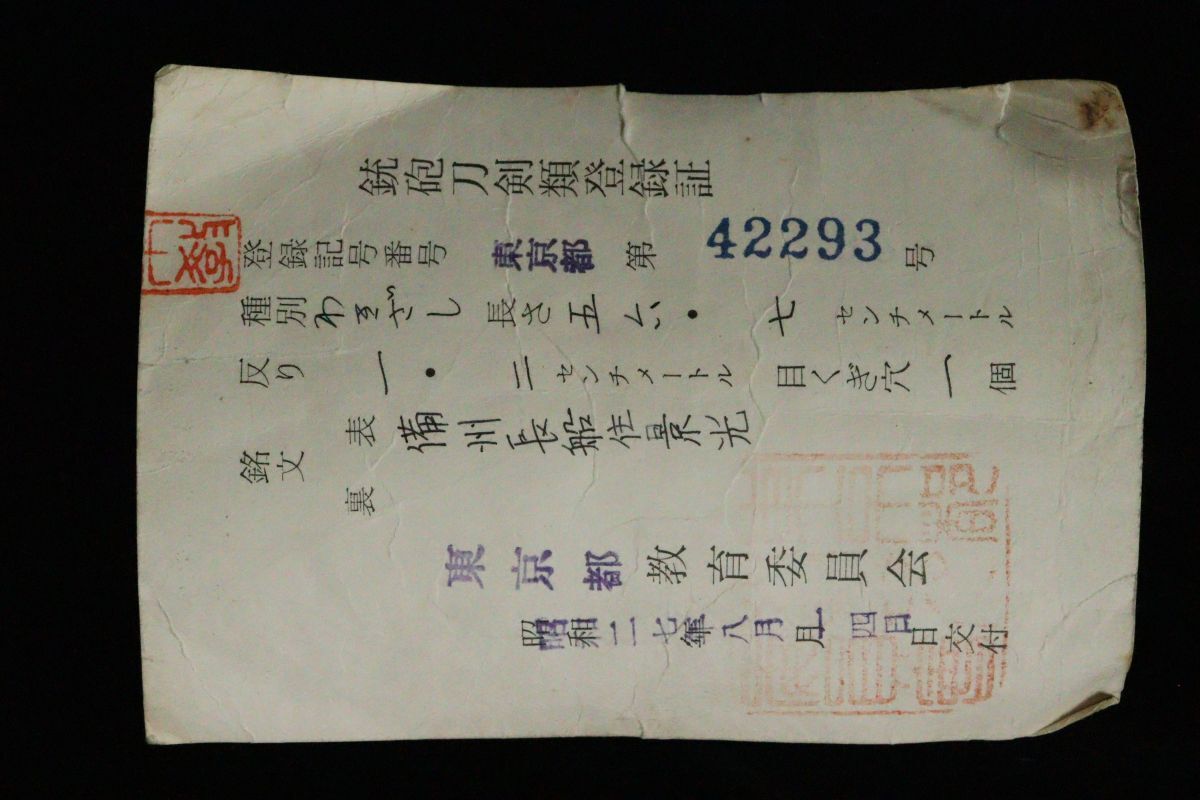 銃砲刀剣類登録証
登録記号番号 東京都 第 42293 号
種別 わきざし 長さ 五六・七 センチメートル
反り 一・二 センチメートル 目くぎ穴 一 個
銘文 表 備州長船住景光
裏
東京都教育委員会
昭和二七年八月一四日交付